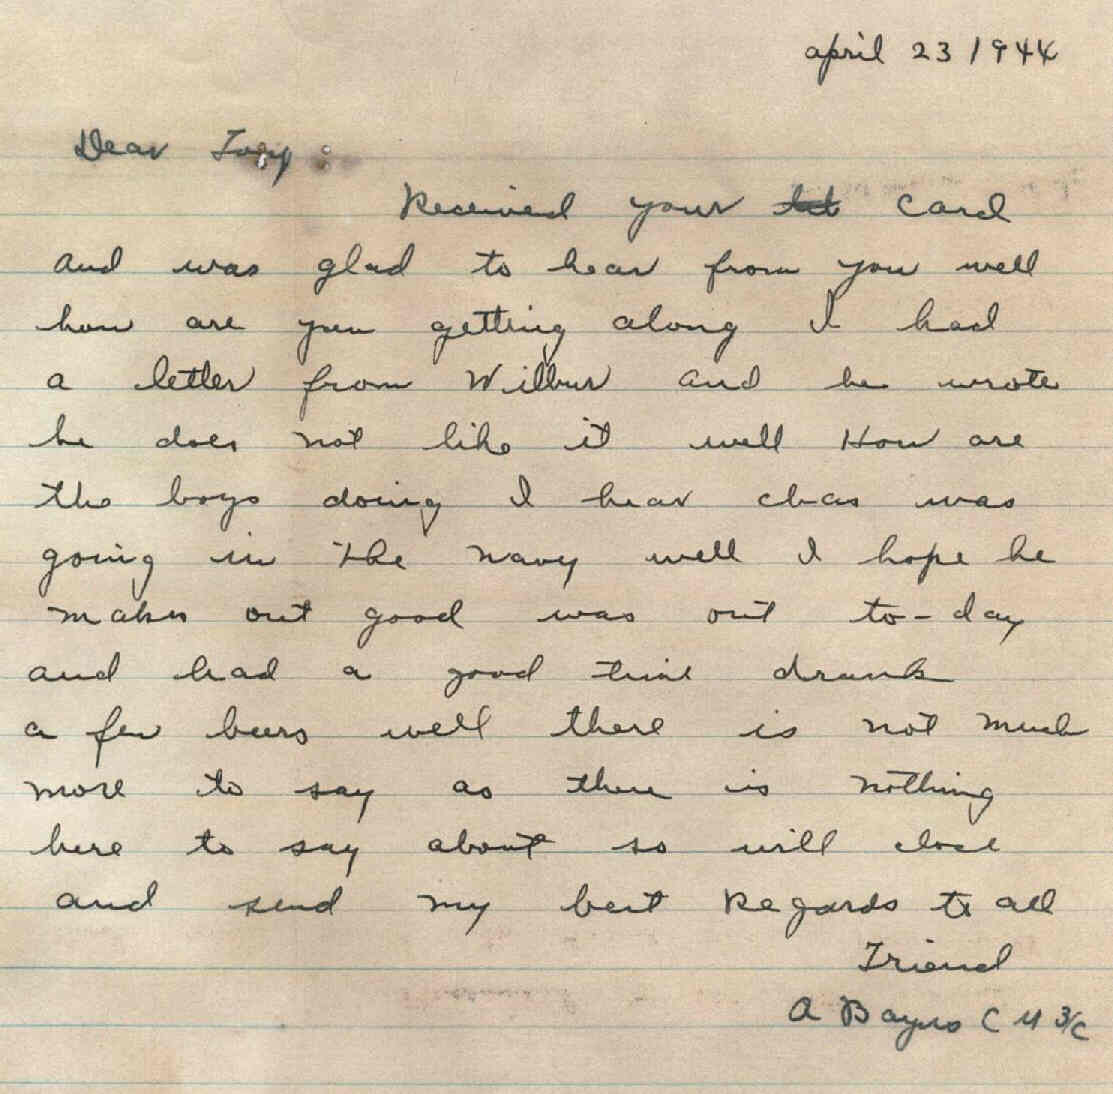 april 23 1944
Dear Tony :
Received your card
and was glad to hear from you well
how are you getting along I had
a letter from Wilbur and he wrote
he does not like it well How are
the boys doing I hear chas was
going in the navy well I hope he
makes out good was out to-day
and had a good time drunk
a few beers well there is not much
more to say as there is nothing
here to say about so will close
and send my best Regards to all
Friend
A Bayus C M 3/C